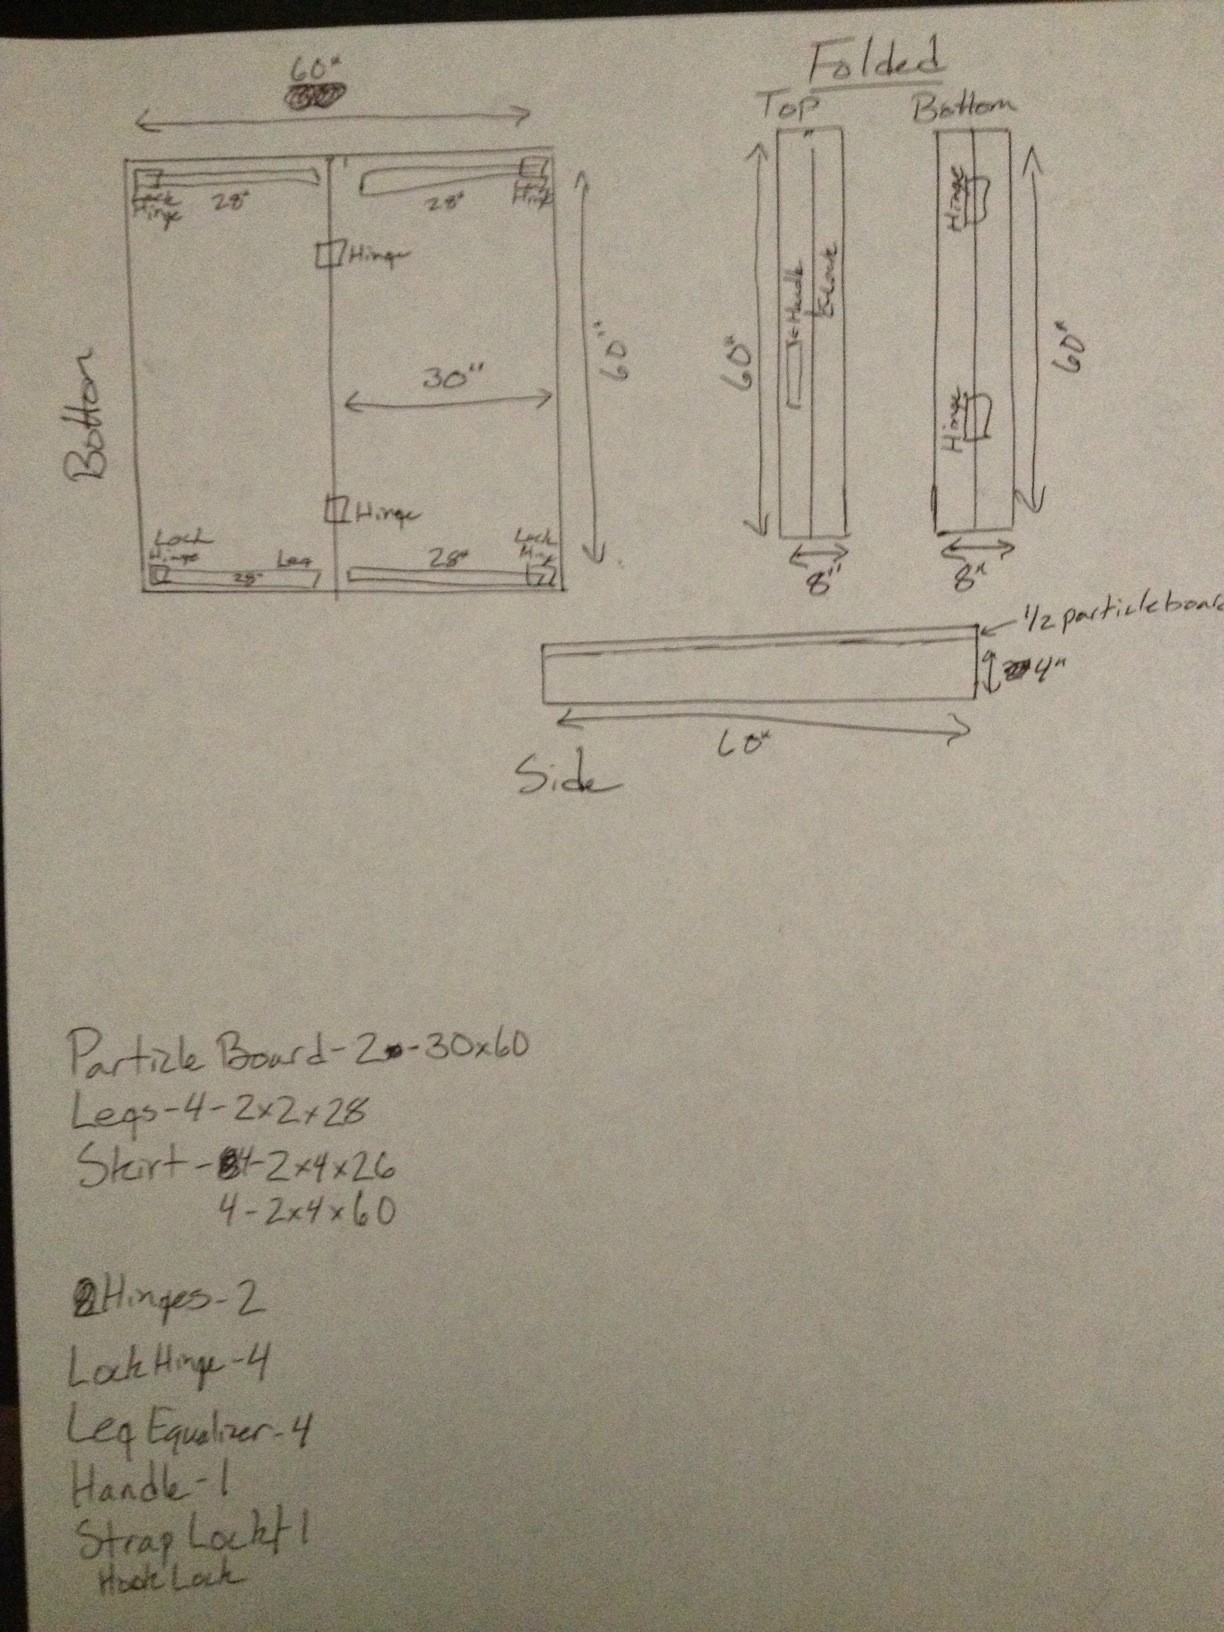 60"
Folded
Top
Bottom
Lock
Hinge
28"
28"
Lock
Hinge
Hinge
60"
30"
Bottom
Hinge
Lock
Hinge
Leg
28"
28"
Lock
Hinge
60"
Handle
Lock
8"
Hinge
Hinge
60"
8"
1/2 particle board
4"
60"
Side
Particle Board-2-30x60
Legs-4-2x2x28
Skirt-4-2x4x26
4-2x4x60
Hinges-2
Lock Hinge-4
Leg Equalizer-4
Handle-1
Strap Lock-1
Hook Lock